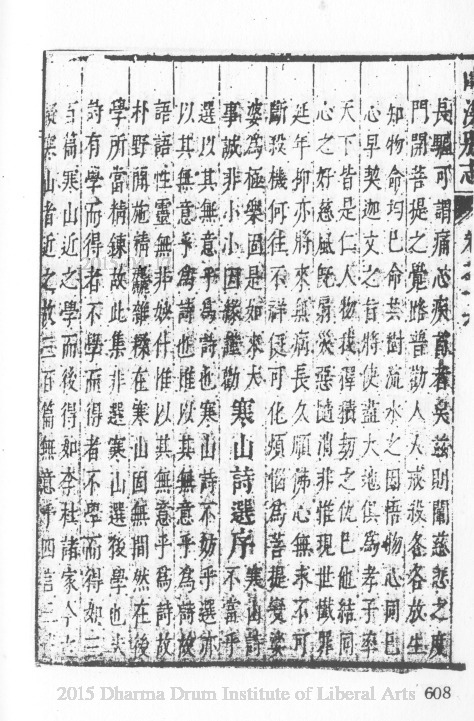 長驅可謂痛心疾首者矣茲則闡慈悲之度
門開菩提之覺路普勸人人戒殺各各放生
知物命均巳命共樹流水之因悟物心同巳
心早契迦文之旨將使盡大地俱為孝子率
天下皆是仁人物我釋積刼之仇巳他結同
心之好慈風旣扇災惡隨消非惟現世懺罪
延年抑亦將來無病長久願諸心無求不可
斷殺機何往不祥從可化煩惱為菩提變娑
婆為極樂固是如來大
事誠非小小因緣謹勸
寒山詩選序
寒山詩
不當乎
選以其無意乎為詩也寒山詩不妨乎選亦
以其無意乎為詩也惟以其無意乎為詩故
語語性靈無非妙什惟以其無意乎為詩故
朴野兩施精麤雜糅在寒山固無間然在後
學所當精鍊故此集非選寒山選後學也夫
詩有學而得者不學而得者不學而得如三
百篇寒山近之學而後得如李杜諸家今之
擬寒山者近之故三百篇無意乎四言
2015 Dharma Drum Institute of Liberal Arts
608